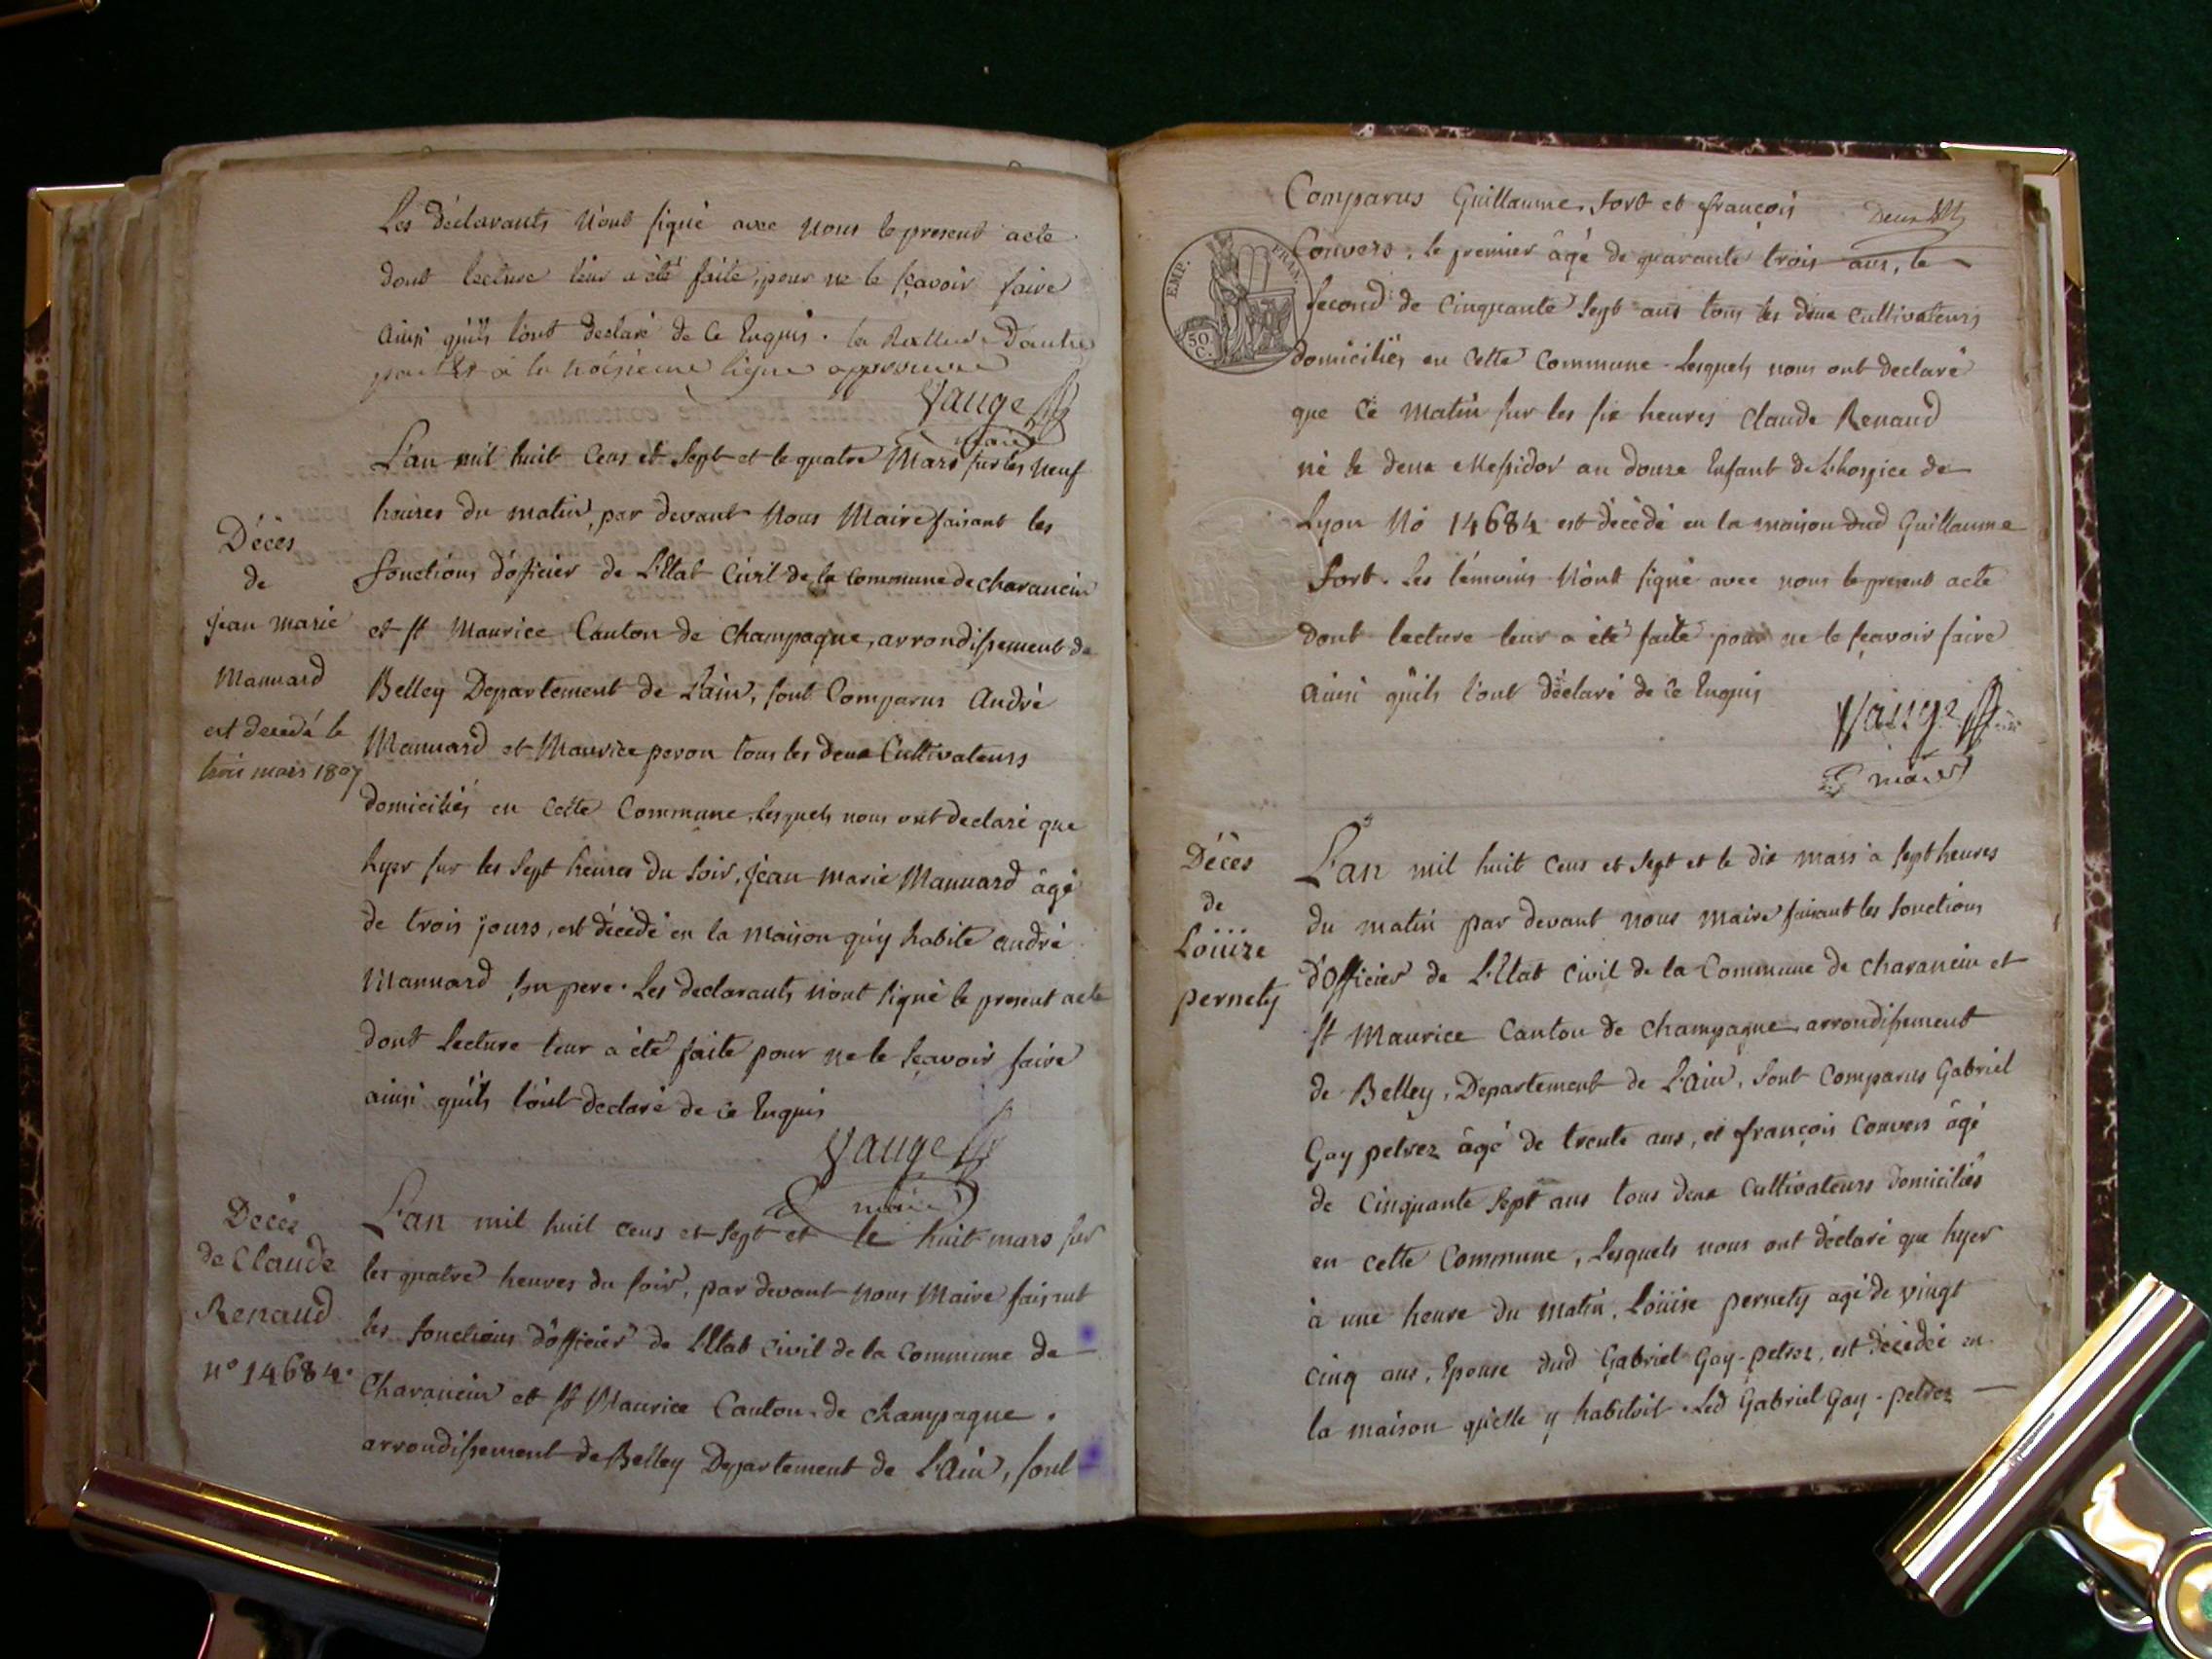 Les déclarants n'ont signé avec nous le present acte
dont lecture leur a été faite, pour ne le sçavoir faire
ainsi qu'ils l'ont declaré de ce Enquis. la Rature D'autre
part à la troisieme ligne approuvée
Vauge
maire
L'an mil huit Cens et Sept et le quatre Mars sur les Neuf
heures du matin, par devant Nous Maire faisant les
fonctions d'officier de L'Etat Civil de la Commune de charancin
et St Maurice Canton de Champagne, arrondissement de
Belley Departement de L'ain, sont Comparus André
Manuard et Maurice peron tous les deux Cultivateurs
domiciliés en Cette Commune, Lesquels nous ont declaré que
hyer sur les Sept heures du Soir, jean marie Manuard âgé
de trois jours, est décédé en la maison qu'y habite andré
Manuard Son pere. Les declarants n'ont signé le present acte
dont Lecture leur a été faite pour ne le Sçavoir faire
ainsi qu'ils l'ont declaré de ce Enquis
Vauge
maire
Décès
de
jean marie
Manuard
est decedé le
trois mars 1807
Décès
de Claude
Renaud
n° 14684.
L'an mil huit cens et Sept et le huit mars sur
les quatre heures du soir, par devant Nous Maire faisant
les fonctions d'officier de L'Etat Civil de la Commune de
Charancin et St Maurice Canton de champagne.
arrondissement de Belley Departement de L'Ain, sont
Comparus Guillaume fort et françois
EMP. FRAN.
50 C.
Convers, le premier âgé de quarante trois ans, le
second de Cinquante Sept ans tous les deux Cultivateurs
domiciliés en Cette Commune. Lesquels nous ont declaré
que ce matin sur les six heures Claude Renaud
né le deux Messidor an douze Enfant de L'hospice de
Lyon No 14684 est décédé en la maison dud Guillaume
fort. Les témoins n'ont signé avec nous le present acte
dont lecture leur a été faite pour ne le sçavoir faire
ainsi qu'ils l'ont déclaré de ce Enquis
Vauge
maire
Décès
de
Loüize
pernety
L'an mil huit Cens et Sept et le dix mars à sept heures
du matin par devant nous maire faisant les fonctions
d'Officier de L'Etat Civil de la Commune de charancin et
St Maurice Canton de champagne arrondissement
de Belley, Departement de L'Ain, Sont Comparus Gabriel
Gay pelrez âgé de trente ans, et françois Convers âgé
de Cinquante Sept ans tous deux Cultivateurs domiciliés
en cette Commune, Lesquels nous ont déclaré que hyer
à une heure du matin, Loüise pernety agé de vingt
cinq ans, Epouse dud Gabriel Gay-pelrez, est décédée en
la maison qu'elle y habitoit. Led Gabriel Gay-pelrez